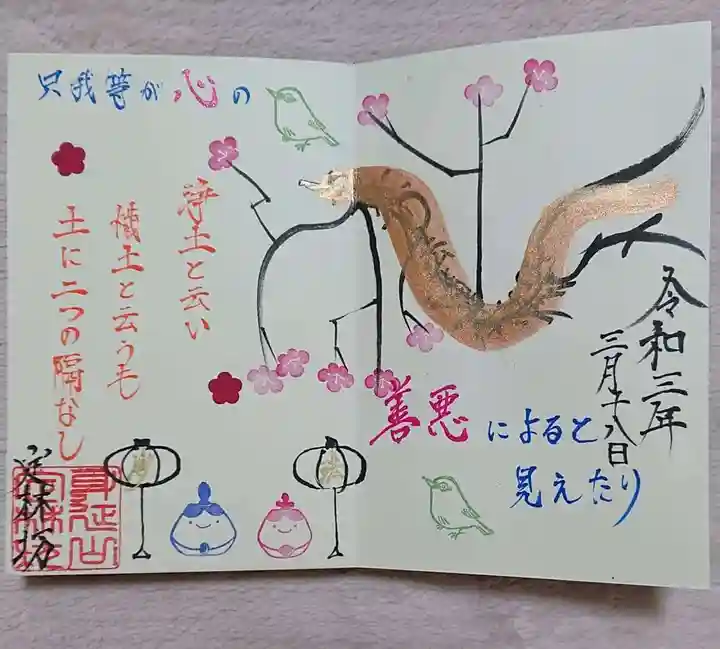 令和三年
三月十八日
浄土と云い
穢土と云うも
土に二つの隔なし
只我等が心の
善悪によると
見えたり
定林坊
身延山
定林坊